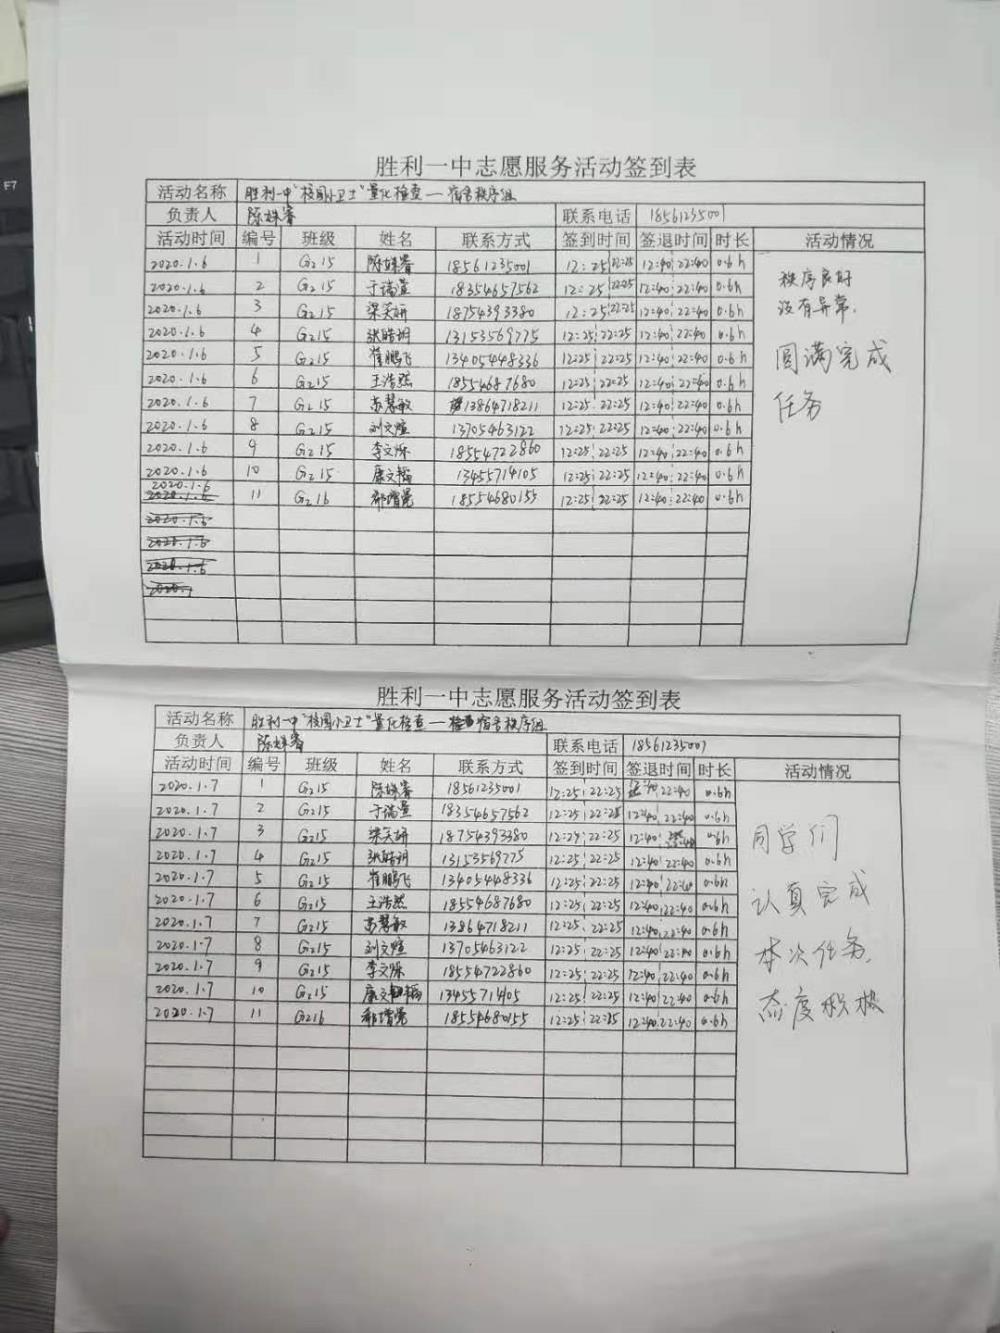 F7
胜利一中志愿服务活动签到表
活动名称 胜利一中"校园小卫士"量化检查一宿舍秩序组
负责人 陈姝睿 联系电话 18561235001
活动时间 编号 班级 姓名 联系方式 签到时间 签退时间 时长 活动情况
2020.1.6 1 G215 陈姝睿 18561235001 12:25 22:25 12:40 22:40 0.6h
2020.1.6 2 G215 于瑞萱 18354657562 12:25 22:25 12:40 22:40 0.6h
2020.1.6 3 G215 梁芙妍 18754393380 12:25 22:25 12:40 22:40 0.6h
2020.1.6 4 G215 张皓玥 13153569775 12:25 22:25 12:40 22:40 0.6h
2020.1.6 5 G215 崔鹏飞 13405448336 12:25 22:25 12:40 22:40 0.6h
2020.1.6 6 G215 王浩然 18554687680 12:25 22:25 12:40 22:40 0.6h
2020.1.6 7 G215 苏慧敏 13864718211 12:25 22:25 12:40 22:40 0.6h
2020.1.6 8 G215 刘文煊 13705463122 12:25 22:25 12:40 22:40 0.6h
2020.1.6 9 G215 李文烁 18554722860 12:25 22:25 12:40 22:40 0.6h
2020.1.6 10 G215 康文韬 13455714105 12:25 22:25 12:40 22:40 0.6h
2020.1.6 11 G216 18554680155 12:25 22:25 12:40 22:40 0.6h
秩序良好
没有异常,
圆满完成
任务
胜利一中志愿服务活动签到表
活动名称 胜利一中"校园小卫士"量化检查一宿舍秩序组
负责人 陈姝睿 联系电话 18561235001
活动时间 编号 班级 姓名 联系方式 签到时间 签退时间 时长 活动情况
2020.1.7 1 G215 陈姝睿 18561235001 12:25 22:25 12:40 22:40 0.6h
2020.1.7 2 G215 于瑞萱 18354657562 12:25 22:25 12:40 22:40 0.6h
2020.1.7 3 G215 梁芙妍 18754393380 12:25 22:25 12:40 0.6h
2020.1.7 4 G215 张皓玥 13153569775 12:25 22:25 12:40 22:40 0.6h
2020.1.7 5 G215 崔鹏飞 13405448336 12:25 22:25 12:40 22:40 0.6h
2020.1.7 6 G215 王浩然 18554687680 12:25 22:25 12:40 22:40 0.6h
2020.1.7 7 G215 苏慧敏 13864718211 12:25 22:25 12:40 22:40 0.6h
2020.1.7 8 G215 刘文煊 13705463122 12:25 22:25 12:40 22:40 0.6h
2020.1.7 9 G215 李文烁 18554722860 12:25 22:25 12:40 22:40 0.6h
2020.1.7 10 G215 康文韬 1345571405 12:25 22:25 12:40 22:40 0.6h
2020.1.7 11 G216 18554680155 12:25 22:25 12:40 22:40 0.6h
同学们
认真完成
本次任务,
态度积极